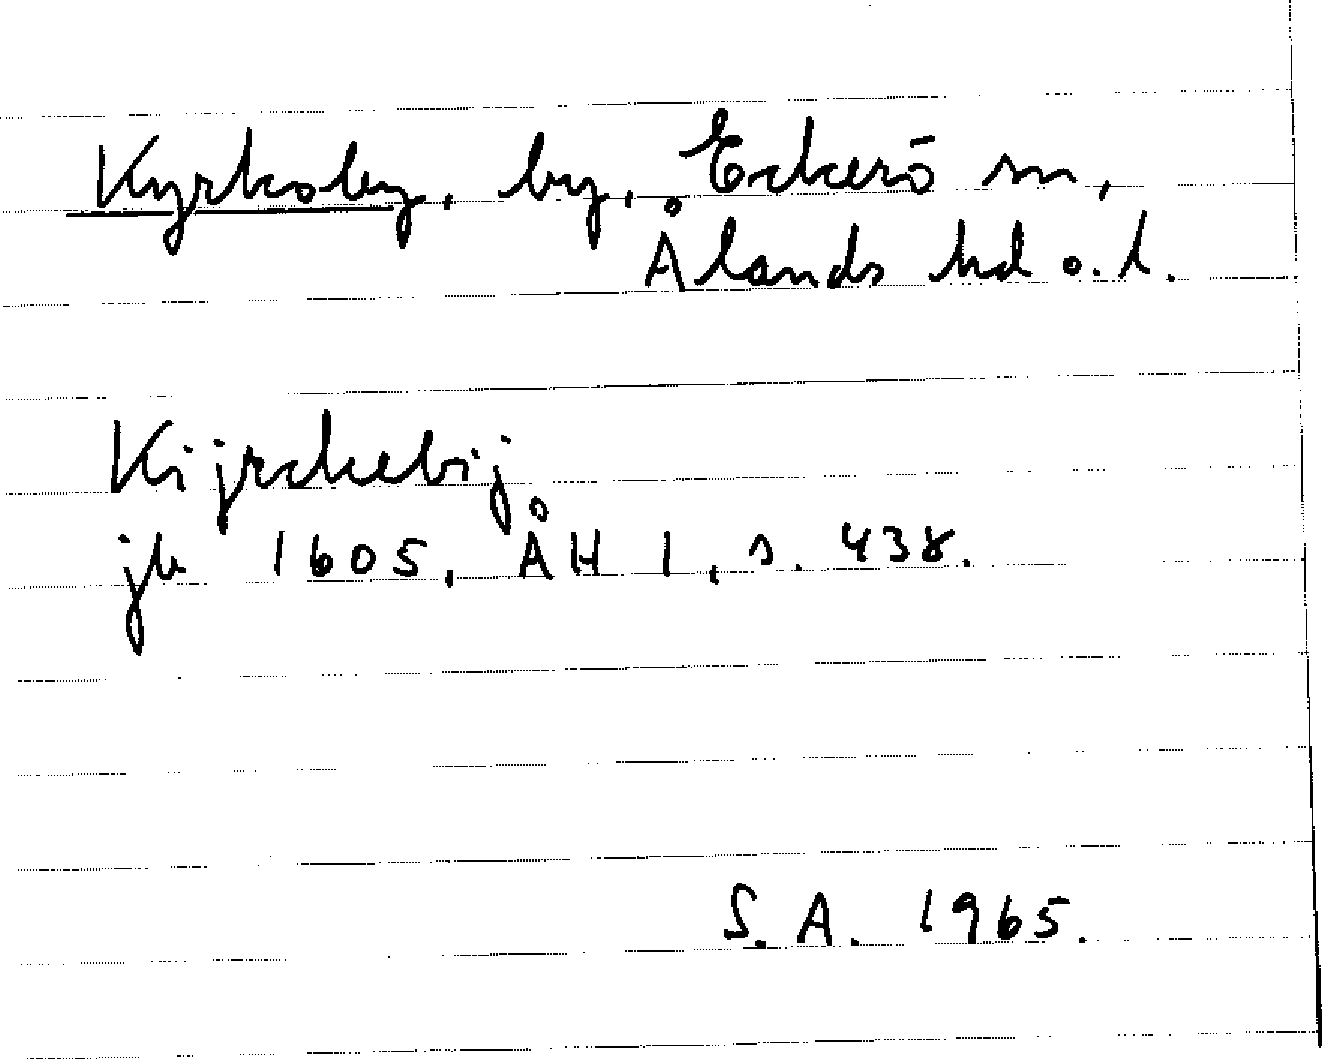 Kyrkoby, by, Eckerö sn,
Ålands hd o. l.
Kijrckebij
jb 1605, ÅH 1, s. 438.
S. A. 1965.